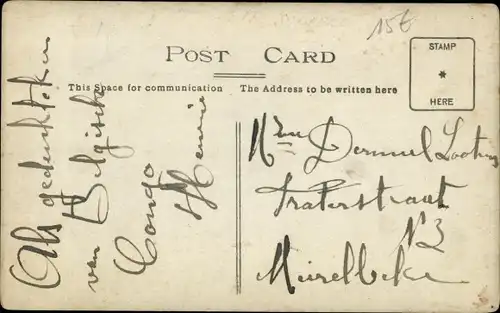 15€
POST CARD
This Space for communication
The Address to be written here
STAMP
*
HERE
Als gedenkteken
van Belgisch
Congo
Henri
Mme Dermul
Fraterstraat
N3
Meirelbeke